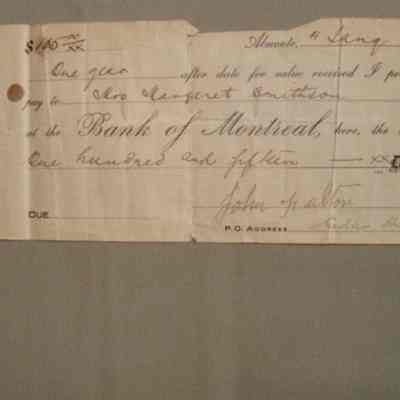 Almonte, 4 Jany
One year after date for value received I
pay to Mrs Margaret Smithson
at the Bank of Montreal, here, the
One hundred and fifteen — xx
John Patton
DUE
P.O. ADDRESS